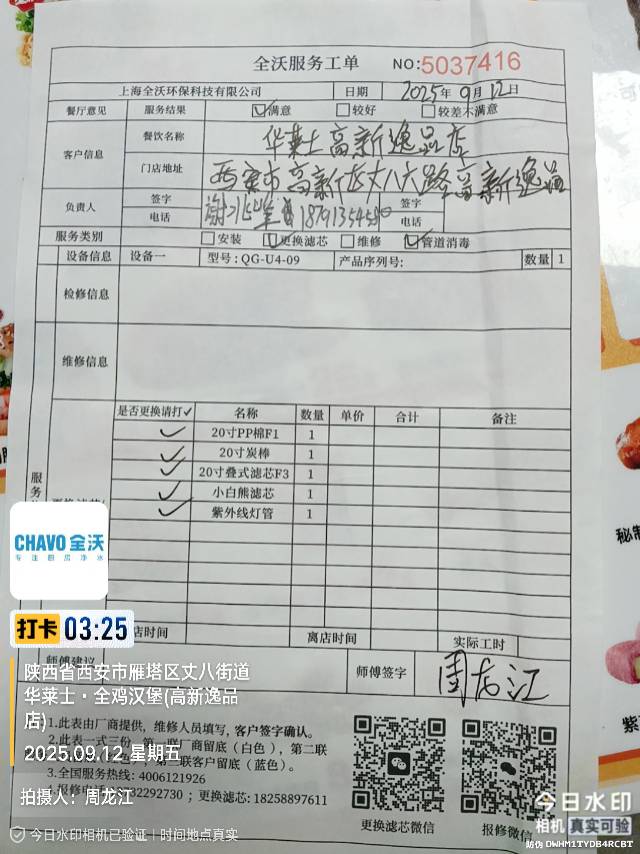 全沃服务工单 NO:5037416
上海全沃环保科技有限公司 日期 2025年9月12日
餐厅意见 服务结果 ☑满意 □较好 □较差不满意
客户信息 餐饮名称 华莱士高新逸品店
门店地址 西安市高新区丈八六路高新逸品
负责人 签字 签字
电话 电话
服务类别 □安装 ☑更换滤芯 □维修 ☑管道消毒
设备信息 设备一 型号:QG-U4-09 产品序列号: 数量 1
检修信息
维修信息
是否更换请打✓ 名称 数量 单价 合计 备注
✓ 20寸PP棉F1 1
✓ 20寸炭棒 1
✓ 20寸叠式滤芯F3 1
✓ 小白熊滤芯 1
✓ 紫外线灯管 1
服务
店时间 离店时间 实际工时
师傅建议 师傅签字 周龙江
1.此表由厂商提供，维修人员填写，客户签字确认。
2.此表一式三份，第一联厂商留底（白色），第二联
第三联客户留底（蓝色）。
3.全国服务热线: 4006121926
32292730；更换滤芯: 18258897611
更换滤芯微信 报修微信
CHAVO 全沃
专注厨房净水
打卡 03:25
陕西省西安市雁塔区丈八街道
华莱士·全鸡汉堡(高新逸品
店)
2025.09.12 星期五
拍摄人：周龙江
今日水印相机已验证 | 时间地点真实
今日水印
相机 真实可验
防伪 DWHM1TYDB4RCBT
秘制
紫